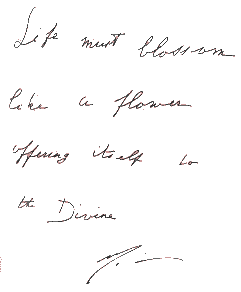 Life must blossom
like a flower
offering itself to
the Divine